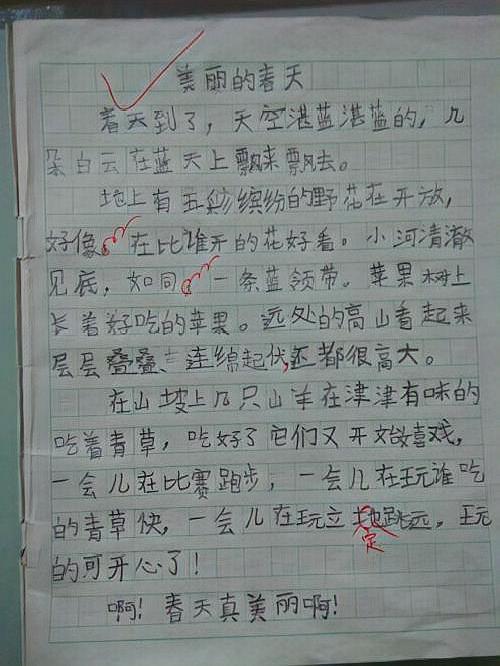 美丽的春天
春天到了，天空湛蓝湛蓝的，几
朵白云在蓝天上飘来飘去。
地上有五彩缤纷的野花在开放，
好像在比谁开的花好看。小河清澈
见底，如同一条蓝领带。苹果树上
长着好吃的苹果。远处的高山看起来
层层叠叠、连绵起伏,还都很高大。
在山坡上几只山羊在津津有味的
吃着青草，吃好了它们又开始嬉戏，
一会儿在比赛跑步，一会儿在玩谁吃
的青草快，一会儿在玩立定跳远。玩
的可开心了！
啊！春天真美丽啊！